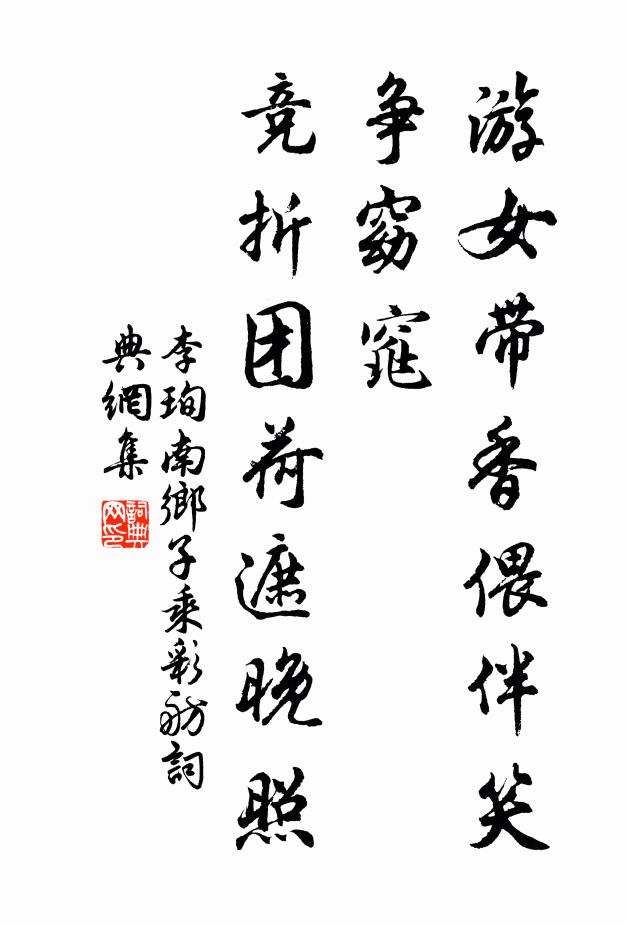 游女带香偎伴笑
争窈窕
竞折团荷遮晚照
李珣南鄉子乘彩舫詞
典網集
詞典网印